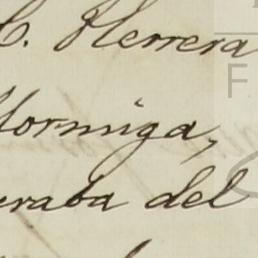 C. Herrera
Hormiga,
eraba del